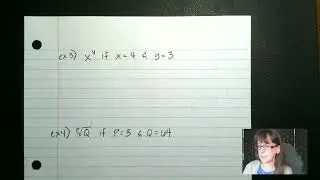 ex3) xʸ if x=4 & y=3
ex4) ᴾ√Q if P=3 & Q=64